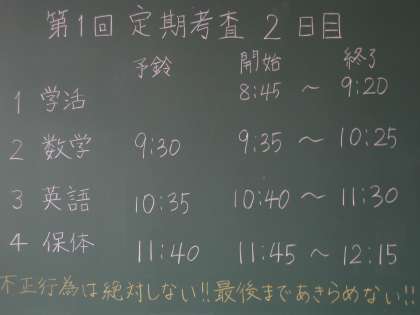 第1回 定期考査 2日目
予鈴 開始 終了
1 学活 8:45 〜 9:20
2 数学 9:30 9:35 〜 10:25
3 英語 10:35 10:40 〜 11:30
4 保体 11:40 11:45 〜 12:15
不正行為は絶対しない!!最後まであきらめない!!